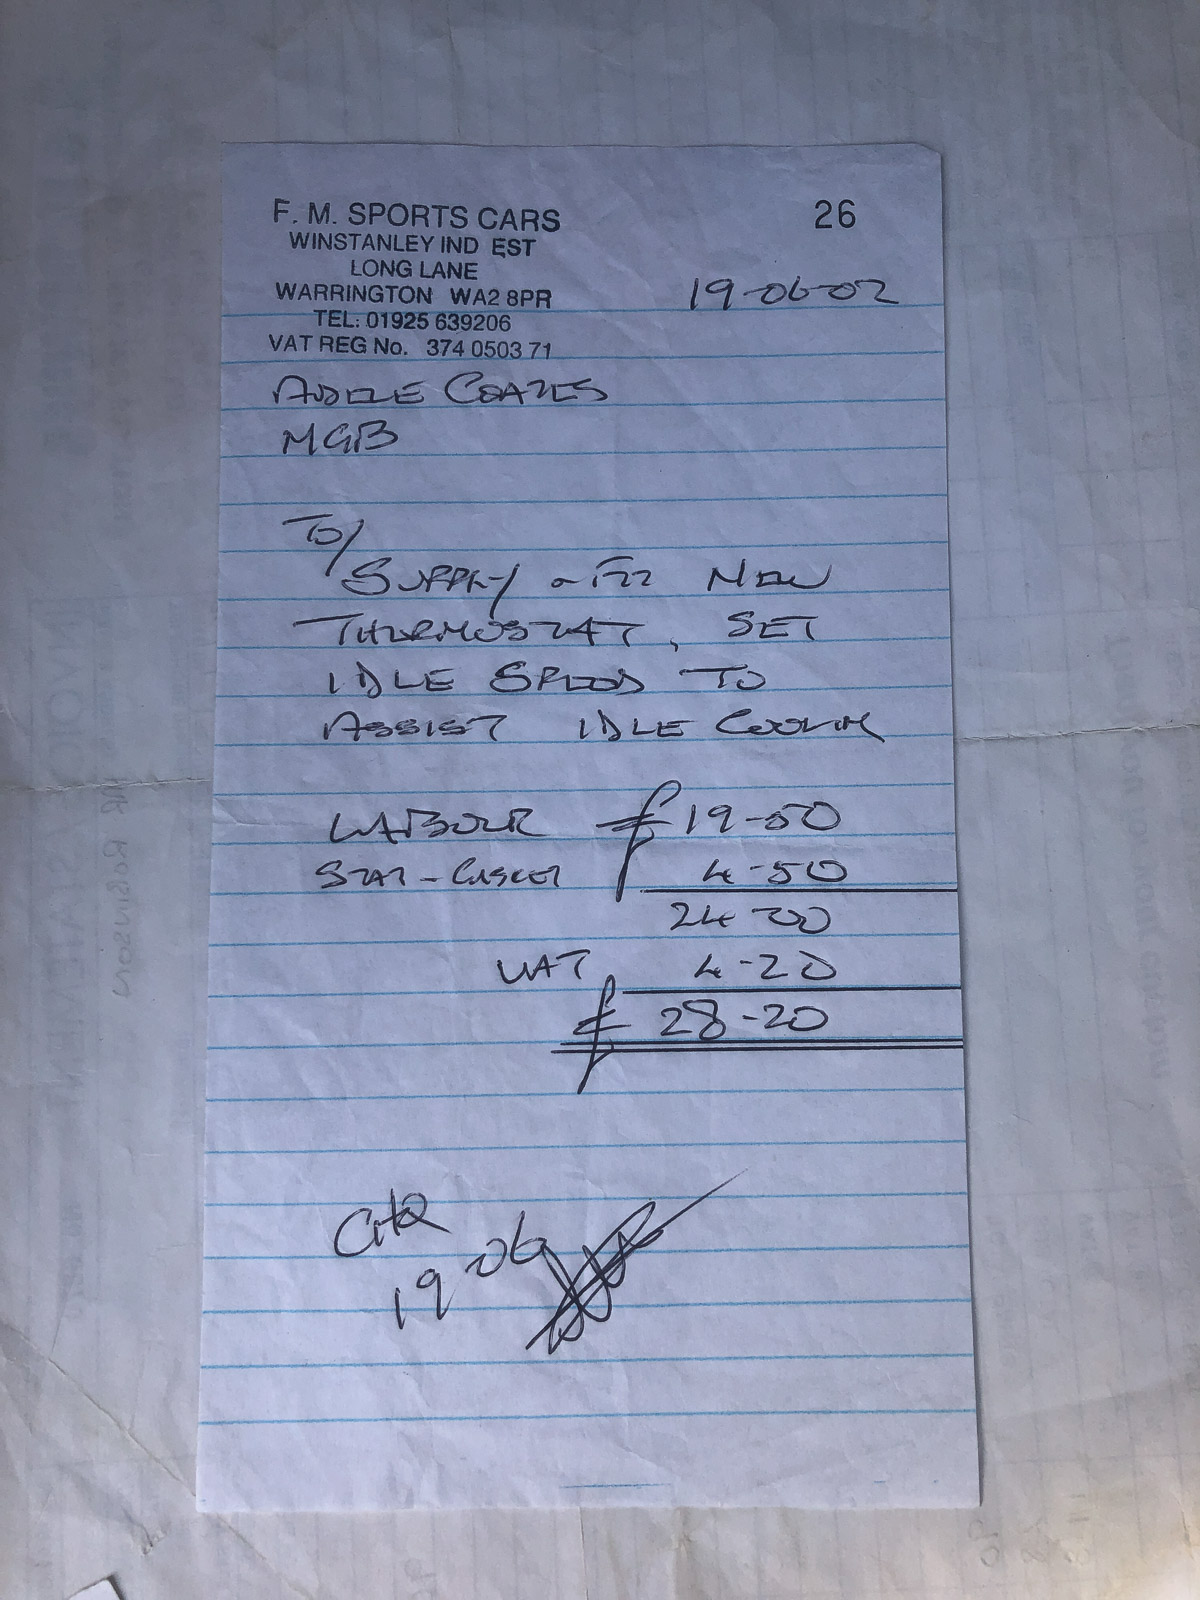 F. M. SPORTS CARS
26
WINSTANLEY IND EST
LONG LANE
WARRINGTON WA2 8PR
19-06-02
TEL: 01925 639206
VAT REG No. 374 0503 71
ADELE COATES
MGB
TO/
SUPPLY & FIT NEW
THERMOSTAT, SET
IDLE SPEED TO
ASSIST IDLE COOLING
LABOUR £ 19-50
STAT - GASKET 4-50
24-00
VAT 4-20
£ 28-20
CHQ
19 06